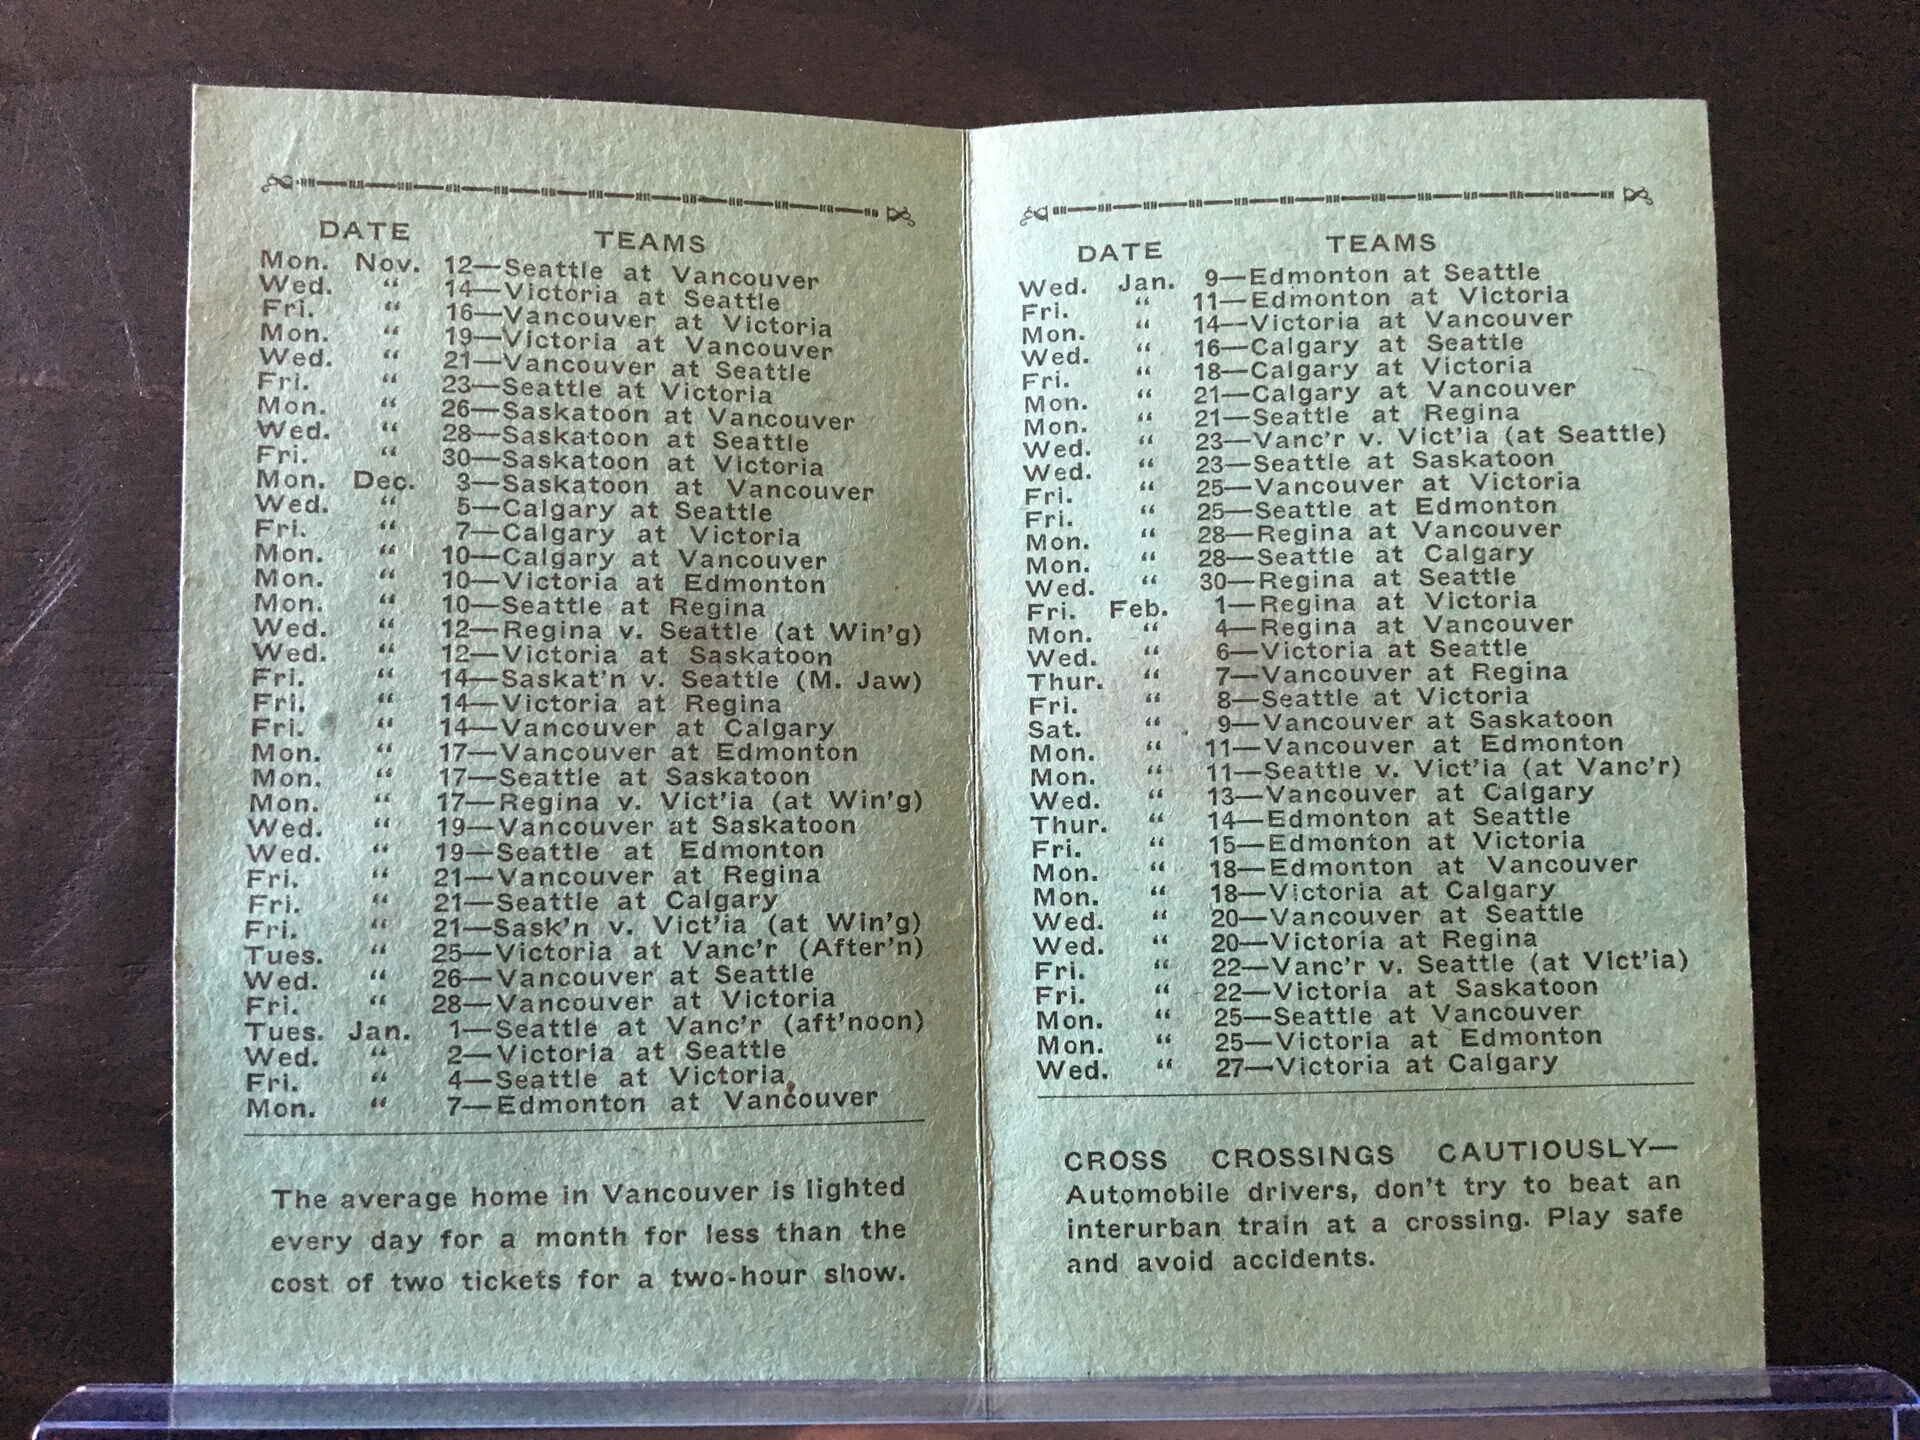 DATE TEAMS
Mon. Nov. 12—Seattle at Vancouver
Wed. “ 14—Victoria at Seattle
Fri. “ 16—Vancouver at Victoria
Mon. “ 19—Victoria at Vancouver
Wed. “ 21—Vancouver at Seattle
Fri. “ 23—Seattle at Victoria
Mon. “ 26—Saskatoon at Vancouver
Wed. “ 28—Saskatoon at Seattle
Fri. “ 30—Saskatoon at Victoria
Mon. Dec. 3—Saskatoon at Vancouver
Wed. “ 5—Calgary at Seattle
Fri. “ 7—Calgary at Victoria
Mon. “ 10—Calgary at Vancouver
Mon. “ 10—Victoria at Edmonton
Mon. “ 10—Seattle at Regina
Wed. “ 12—Regina v. Seattle (at Win'g)
Wed. “ 12—Victoria at Saskatoon
Fri. “ 14—Saskat'n v. Seattle (M. Jaw)
Fri. “ 14—Victoria at Regina
Fri. “ 14—Vancouver at Calgary
Mon. “ 17—Vancouver at Edmonton
Mon. “ 17—Seattle at Saskatoon
Mon. “ 17—Regina v. Vict'ia (at Win'g)
Wed. “ 19—Vancouver at Saskatoon
Wed. “ 19—Seattle at Edmonton
Fri. “ 21—Vancouver at Regina
Fri. “ 21—Seattle at Calgary
Fri. “ 21—Sask'n v. Vict'ia (at Win'g)
Tues. “ 25—Victoria at Vanc'r (After'n)
Wed. “ 26—Vancouver at Seattle
Fri. “ 28—Vancouver at Victoria
Tues. Jan. 1—Seattle at Vanc'r (aft'noon)
Wed. “ 2—Victoria at Seattle
Fri. “ 4—Seattle at Victoria
Mon. “ 7—Edmonton at Vancouver
The average home in Vancouver is lighted
every day for a month for less than the
cost of two tickets for a two-hour show.
DATE TEAMS
Wed. Jan. 9—Edmonton at Seattle
Fri. “ 11—Edmonton at Victoria
Mon. “ 14—Victoria at Vancouver
Wed. “ 16—Calgary at Seattle
Fri. “ 18—Calgary at Victoria
Mon. “ 21—Calgary at Vancouver
Mon. “ 21—Seattle at Regina
Wed. “ 23—Vanc'r v. Vict'ia (at Seattle)
Wed. “ 23—Seattle at Saskatoon
Fri. “ 25—Vancouver at Victoria
Fri. “ 25—Seattle at Edmonton
Mon. “ 28—Regina at Vancouver
Mon. “ 28—Seattle at Calgary
Wed. “ 30—Regina at Seattle
Fri. Feb. 1—Regina at Victoria
Mon. “ 4—Regina at Vancouver
Wed. “ 6—Victoria at Seattle
Thur. “ 7—Vancouver at Regina
Fri. “ 8—Seattle at Victoria
Sat. “ 9—Vancouver at Saskatoon
Mon. “ 11—Vancouver at Edmonton
Mon. “ 11—Seattle v. Vict'ia (at Vanc'r)
Wed. “ 13—Vancouver at Calgary
Thur. “ 14—Edmonton at Seattle
Fri. “ 15—Edmonton at Victoria
Mon. “ 18—Edmonton at Vancouver
Mon. “ 18—Victoria at Calgary
Wed. “ 20—Vancouver at Seattle
Wed. “ 20—Victoria at Regina
Fri. “ 22—Vanc'r v. Seattle (at Vict'ia)
Fri. “ 22—Victoria at Saskatoon
Mon. “ 25—Seattle at Vancouver
Mon. “ 25—Victoria at Edmonton
Wed. “ 27—Victoria at Calgary
CROSS CROSSINGS CAUTIOUSLY—
Automobile drivers, don't try to beat an
interurban train at a crossing. Play safe
and avoid accidents.